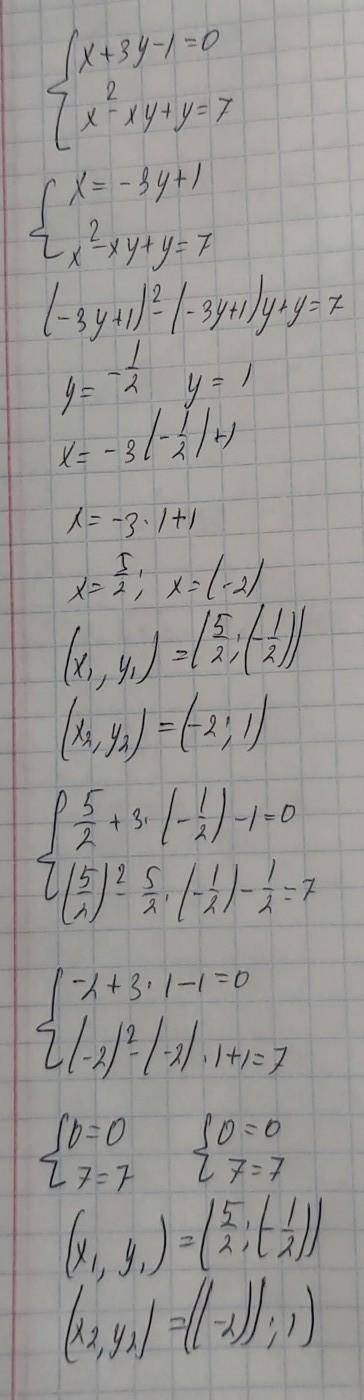 { x+3y-1=0
x²-xy+y=7
{ x=-3y+1
x²-xy+y=7
(-3y+1)²-(-3y+1)y+y=7
y=-1/2 y=1
x=-3(-1/2)+1
x=-3·1+1
x=5/2; x=(-2)
(x₁, y₁)=(5/2;(-1/2))
(x₂,y₂)=(-2;1)
{ 5/2+3·(-1/2)-1=0
(5/2)²-5/2·(-1/2)-1/2=7
{ -2+3·1-1=0
(-2)²-(-2)·1+1=7
{ 0=0 { 0=0
7=7 7=7
(x₁, y₁)=(5/2;(-1/2))
(x₂,y₂)=((-2));1)